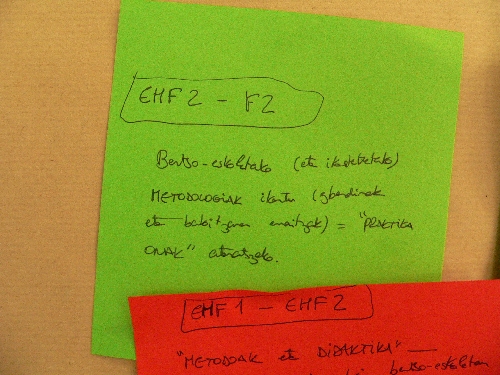 EMF 2 - F2
Bertso-eskoletako (eta ikastetxetako)
METODOLOGIAK ikertu (gberdinak
eta bakoitzaren emaitzak) = "PRAKTIKA
ONAK" ateratzeko.
EMF 1 - EMF 2
"METODOAK eta DIDAKTIKA" —
bertso-eskoletan